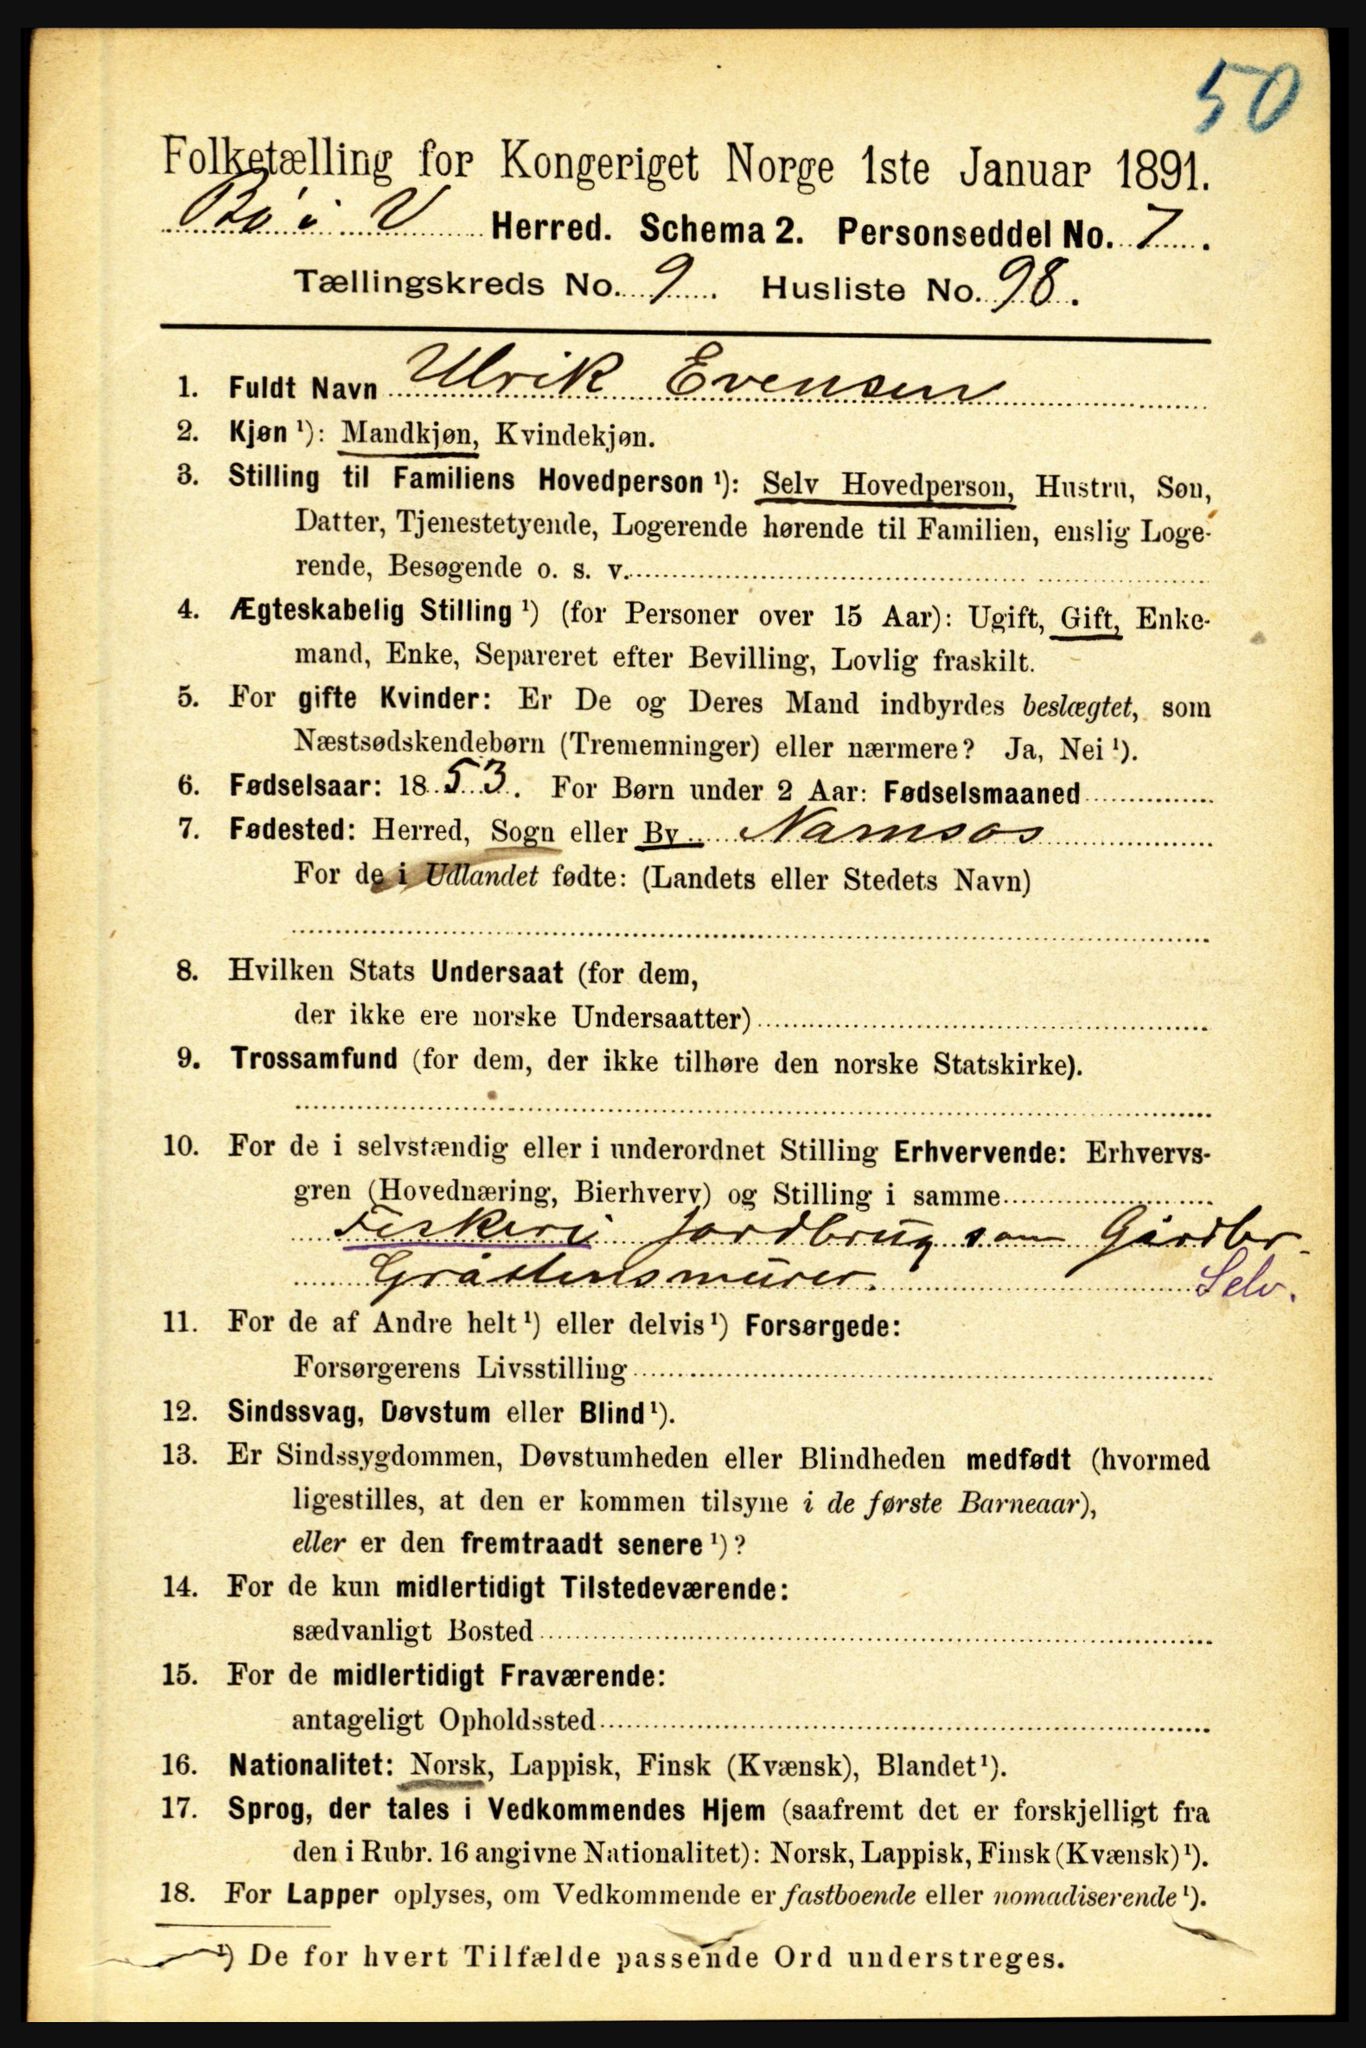 50
Folketælling for Kongeriget Norge 1ste Januar 1891.
Bø i V Herred. Schema 2. Personseddel No. 7.
Tællingskreds No. 9. Husliste No. 98.
1. Fuldt Navn Ulrik Evensen
2. Kjøn ¹): Mandkjøn, Kvindekjøn.
3. Stilling til Familiens Hovedperson ¹): Selv Hovedperson, Hustru, Søn,
Datter, Tjenestetyende, Logerende hørende til Familien, enslig Loge-
rende, Besøgende o. s. v.
4. Ægteskabelig Stilling ¹) (for Personer over 15 Aar): Ugift, Gift, Enke-
mand, Enke, Separeret efter Bevilling, Lovlig fraskilt.
5. For gifte Kvinder: Er De og Deres Mand indbyrdes beslægtet, som
Næstsødskendebørn (Tremenninger) eller nærmere? Ja, Nei ¹).
6. Fødselsaar: 1853. For Børn under 2 Aar: Fødselsmaaned
7. Fødested: Herred, Sogn eller By Namsos
For de i Udlandet fødte: (Landets eller Stedets Navn)
8. Hvilken Stats Undersaat (for dem,
der ikke ere norske Undersaatter)
9. Trossamfund (for dem, der ikke tilhøre den norske Statskirke).
10. For de i selvstændig eller i underordnet Stilling Erhvervende: Erhvervs-
gren (Hovednæring, Bierhverv) og Stilling i samme
Fiskeri jordbrug som Gårdbr.
Gråstensmurer. Selv.
11. For de af Andre helt ¹) eller delvis ¹) Forsørgede:
Forsørgerens Livsstilling
12. Sindssvag, Døvstum eller Blind ¹).
13. Er Sindssygdommen, Døvstumheden eller Blindheden medfødt (hvormed
ligestilles, at den er kommen tilsyne i de første Barneaar),
eller er den fremtraadt senere ¹)?
14. For de kun midlertidigt Tilstedeværende:
sædvanligt Bosted
15. For de midlertidigt Fraværende:
antageligt Opholdssted
16. Nationalitet: Norsk, Lappisk, Finsk (Kvænsk), Blandet ¹).
17. Sprog, der tales i Vedkommendes Hjem (saafremt det er forskjelligt fra
den i Rubr. 16 angivne Nationalitet): Norsk, Lappisk, Finsk (Kvænsk) ¹).
18. For Lapper oplyses, om Vedkommende er fastboende eller nomadiserende ¹).
¹) De for hvert Tilfælde passende Ord understreges.